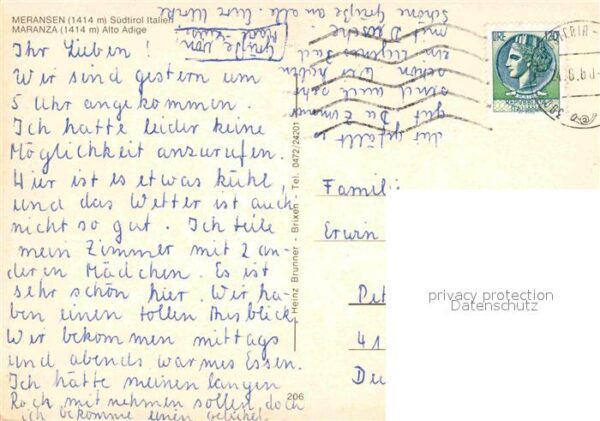 MERANSEN (1414 m) Südtirol Italien
MARANZA (1414 m) Alto Adige
Ihr Lieben!
Wir sind gestern um
5 Uhr angekommen.
Ich hatte leider keine
Möglichkeit anzurufen.
Hier ist es etwas kühl,
und das Wetter ist auch
nicht so gut. Ich teile
mein Zimmer mit 2 an-
deren Mädchen. Es ist
sehr schön hier. Wir ha-
ben einen tollen Ausblick.
Wir bekommen mittags
und abends warmes Essen.
Ich hätte meinen langen
Rock mit nehmen sollen, doch
ich bekomme einen
gefällt
gut. Die Zimmer
sind auch sehr
schön. Wir hatten
ein
mit Dusche.
Schöne Grüße an alle. Eure Ulrike
Grüße von
Heinz Brunner - Brixen - Tel. 0472/24201
206
LIRE 120
Famili
Erwin
Pet
41
Deu
privacy protection
Datenschutz